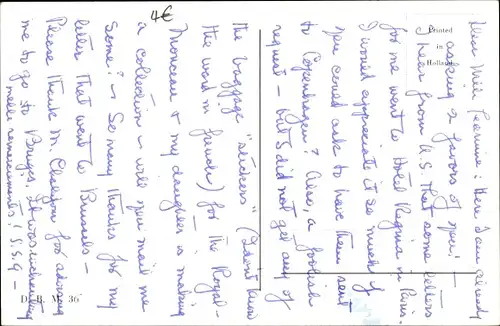 Dear Mlle : Here I am already
asking 2 favors of you!
I hear from U.S. that some letters
for me went to Hotel Regina in Paris.
I would appreciate it so much if
you could ask to have them sent
to Copenhagen? Also, a foolish
request – but I did not get any of
the baggage "stickers" (I don't know
the word in French) for the Royal-
Monceau & my daughter is making
a collection – will you mail me
some? – So many thanks for my
letter that went to Brussels –
Please thank M. for advising
me to go to Bruges. It was enchanting
mille remerciements! S.S.G –
4€
Printed
in
Holland
D. B. M. 36